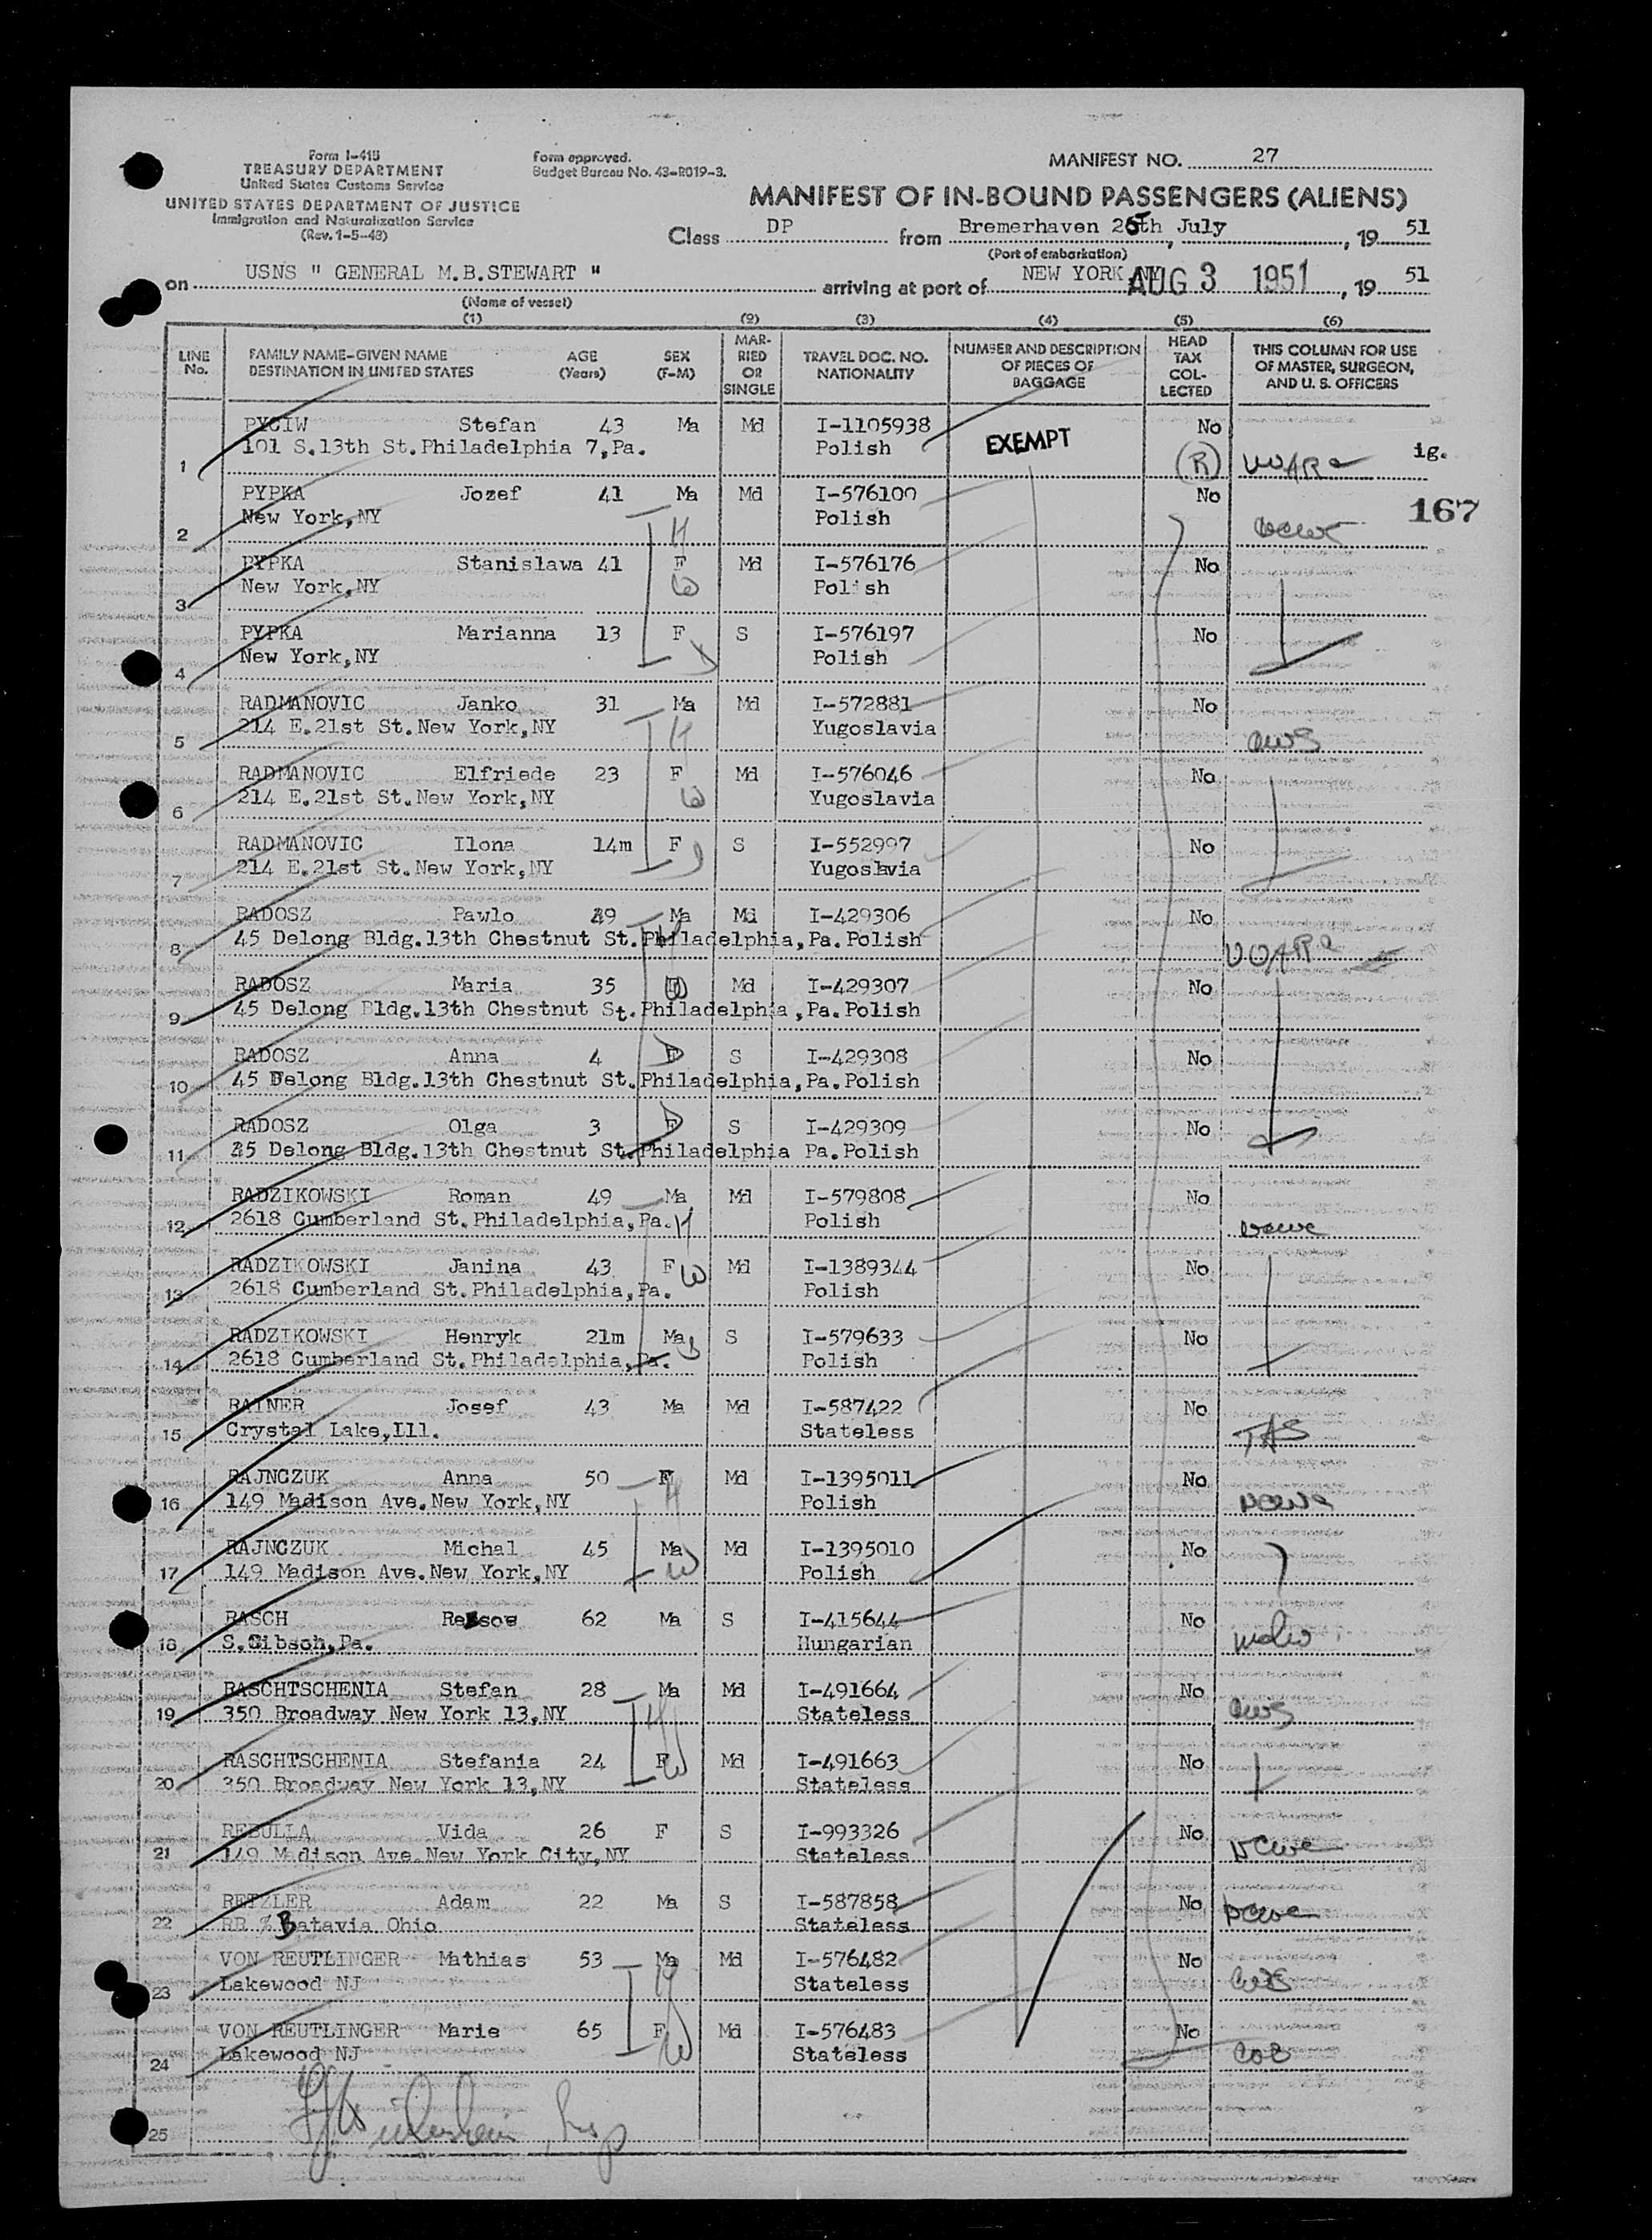 Form I-415
TREASURY DEPARTMENT
United States Customs Service
UNITED STATES DEPARTMENT OF JUSTICE
Immigration and Naturalization Service
(Rev. 1-5-48)
Form approved.
Budget Bureau No. 43-R019-3.
MANIFEST NO. 27
MANIFEST OF IN-BOUND PASSENGERS (ALIENS)
Class DP from Bremerhaven 25th July, 19 51
(Port of embarkation)
on USNS " GENERAL M.B.STEWART " arriving at port of NEW YORK NY AUG 3 1951, 19 51
(Name of vessel)
(1) (2) (3) (4) (5) (6)
LINE No. FAMILY NAME-GIVEN NAME DESTINATION IN UNITED STATES AGE (Years) SEX (F-M) MARRIED OR SINGLE TRAVEL DOC. NO. NATIONALITY NUMBER AND DESCRIPTION OF PIECES OF BAGGAGE HEAD TAX COLLECTED THIS COLUMN FOR USE OF MASTER, SURGEON, AND U. S. OFFICERS
PYCIW Stefan 43 Ma Md I-1105938 EXEMPT No
1 101 S.13th St.Philadelphia 7,Pa. Polish (R) ig.
PYPKA Jozef 41 Ma Md I-576100 No 167
2 New York,NY H Polish
PYPKA Stanislawa 41 F Md I-576176 No
3 New York,NY W Pol sh
PYPKA Marianna 13 F S I-576197 No
4 New York,NY D Polish
RADMANOVIC Janko 31 Ma Md I-572881 No
5 214 E.21st St.New York,NY H Yugoslavia
RADMANOVIC Elfriede 23 F Md I-576046 No
6 214 E.21st St.New York,NY W Yugoslavia
RADMANOVIC Ilona 14m F D S I-552997 No
7 214 E.21st St.New York,NY Yugoslavia
RADOSZ Pawlo 49 Ma Md I-429306 No
8 45 Delong Bldg.13th Chestnut St.Philadelphia,Pa.Polish
RADOSZ Maria 35 W Md I-429307 No
9 45 Delong Bldg.13th Chestnut St.Philadelphia,Pa.Polish
RADOSZ Anna 4 F D S I-429308 No
10 45 Delong Bldg.13th Chestnut St.Philadelphia,Pa.Polish
RADOSZ Olga 3 F D S I-429309 No
11 45 Delong Bldg.13th Chestnut St.Philadelphia Pa.Polish
RADZIKOWSKI Roman 49 Ma Md I-579808 No
12 2618 Cumberland St.Philadelphia,Pa. H Polish
RADZIKOWSKI Janina 43 F W Md I-1389344 No
13 2618 Cumberland St.Philadelphia,Pa. Polish
RADZIKOWSKI Henryk 21m Ma S I-579633 No
14 2618 Cumberland St.Philadelphia,Pa. Polish
RAINER Josef 43 Ma Md I-587422 No
15 Crystal Lake,Ill. Stateless TAS
RAJNCZUK Anna 50 F Md I-1395011 No
16 149 Madison Ave.New York,NY H Polish
RAJNCZUK Michal 45 Ma Md I-1395010 No
17 149 Madison Ave.New York,NY W Polish
RASCH 62 Ma S I-415644 No
18 S.Gibsch,Pa. Hungarian
RASCHTSCHENIA Stefan 28 Ma Md I-491664 No
19 350 Broadway New York 13,NY H Stateless
RASCHTSCHENIA Stefania 24 F Md I-491663 No
20 350 Broadway New York 13,NY W Stateless
REBULLA Vida 26 F S I-993326 No
21 149 Madison Ave.New York City,NY Stateless
RETZLER Adam 22 Ma S I-587858 No
22 RR Batavia Ohio Stateless
VON REUTLINGER Mathias 53 Ma Md I-576482 No
23 Lakewood NJ H Stateless
VON REUTLINGER Marie 65 F Md I-576483 No
24 Lakewood NJ W Stateless
25